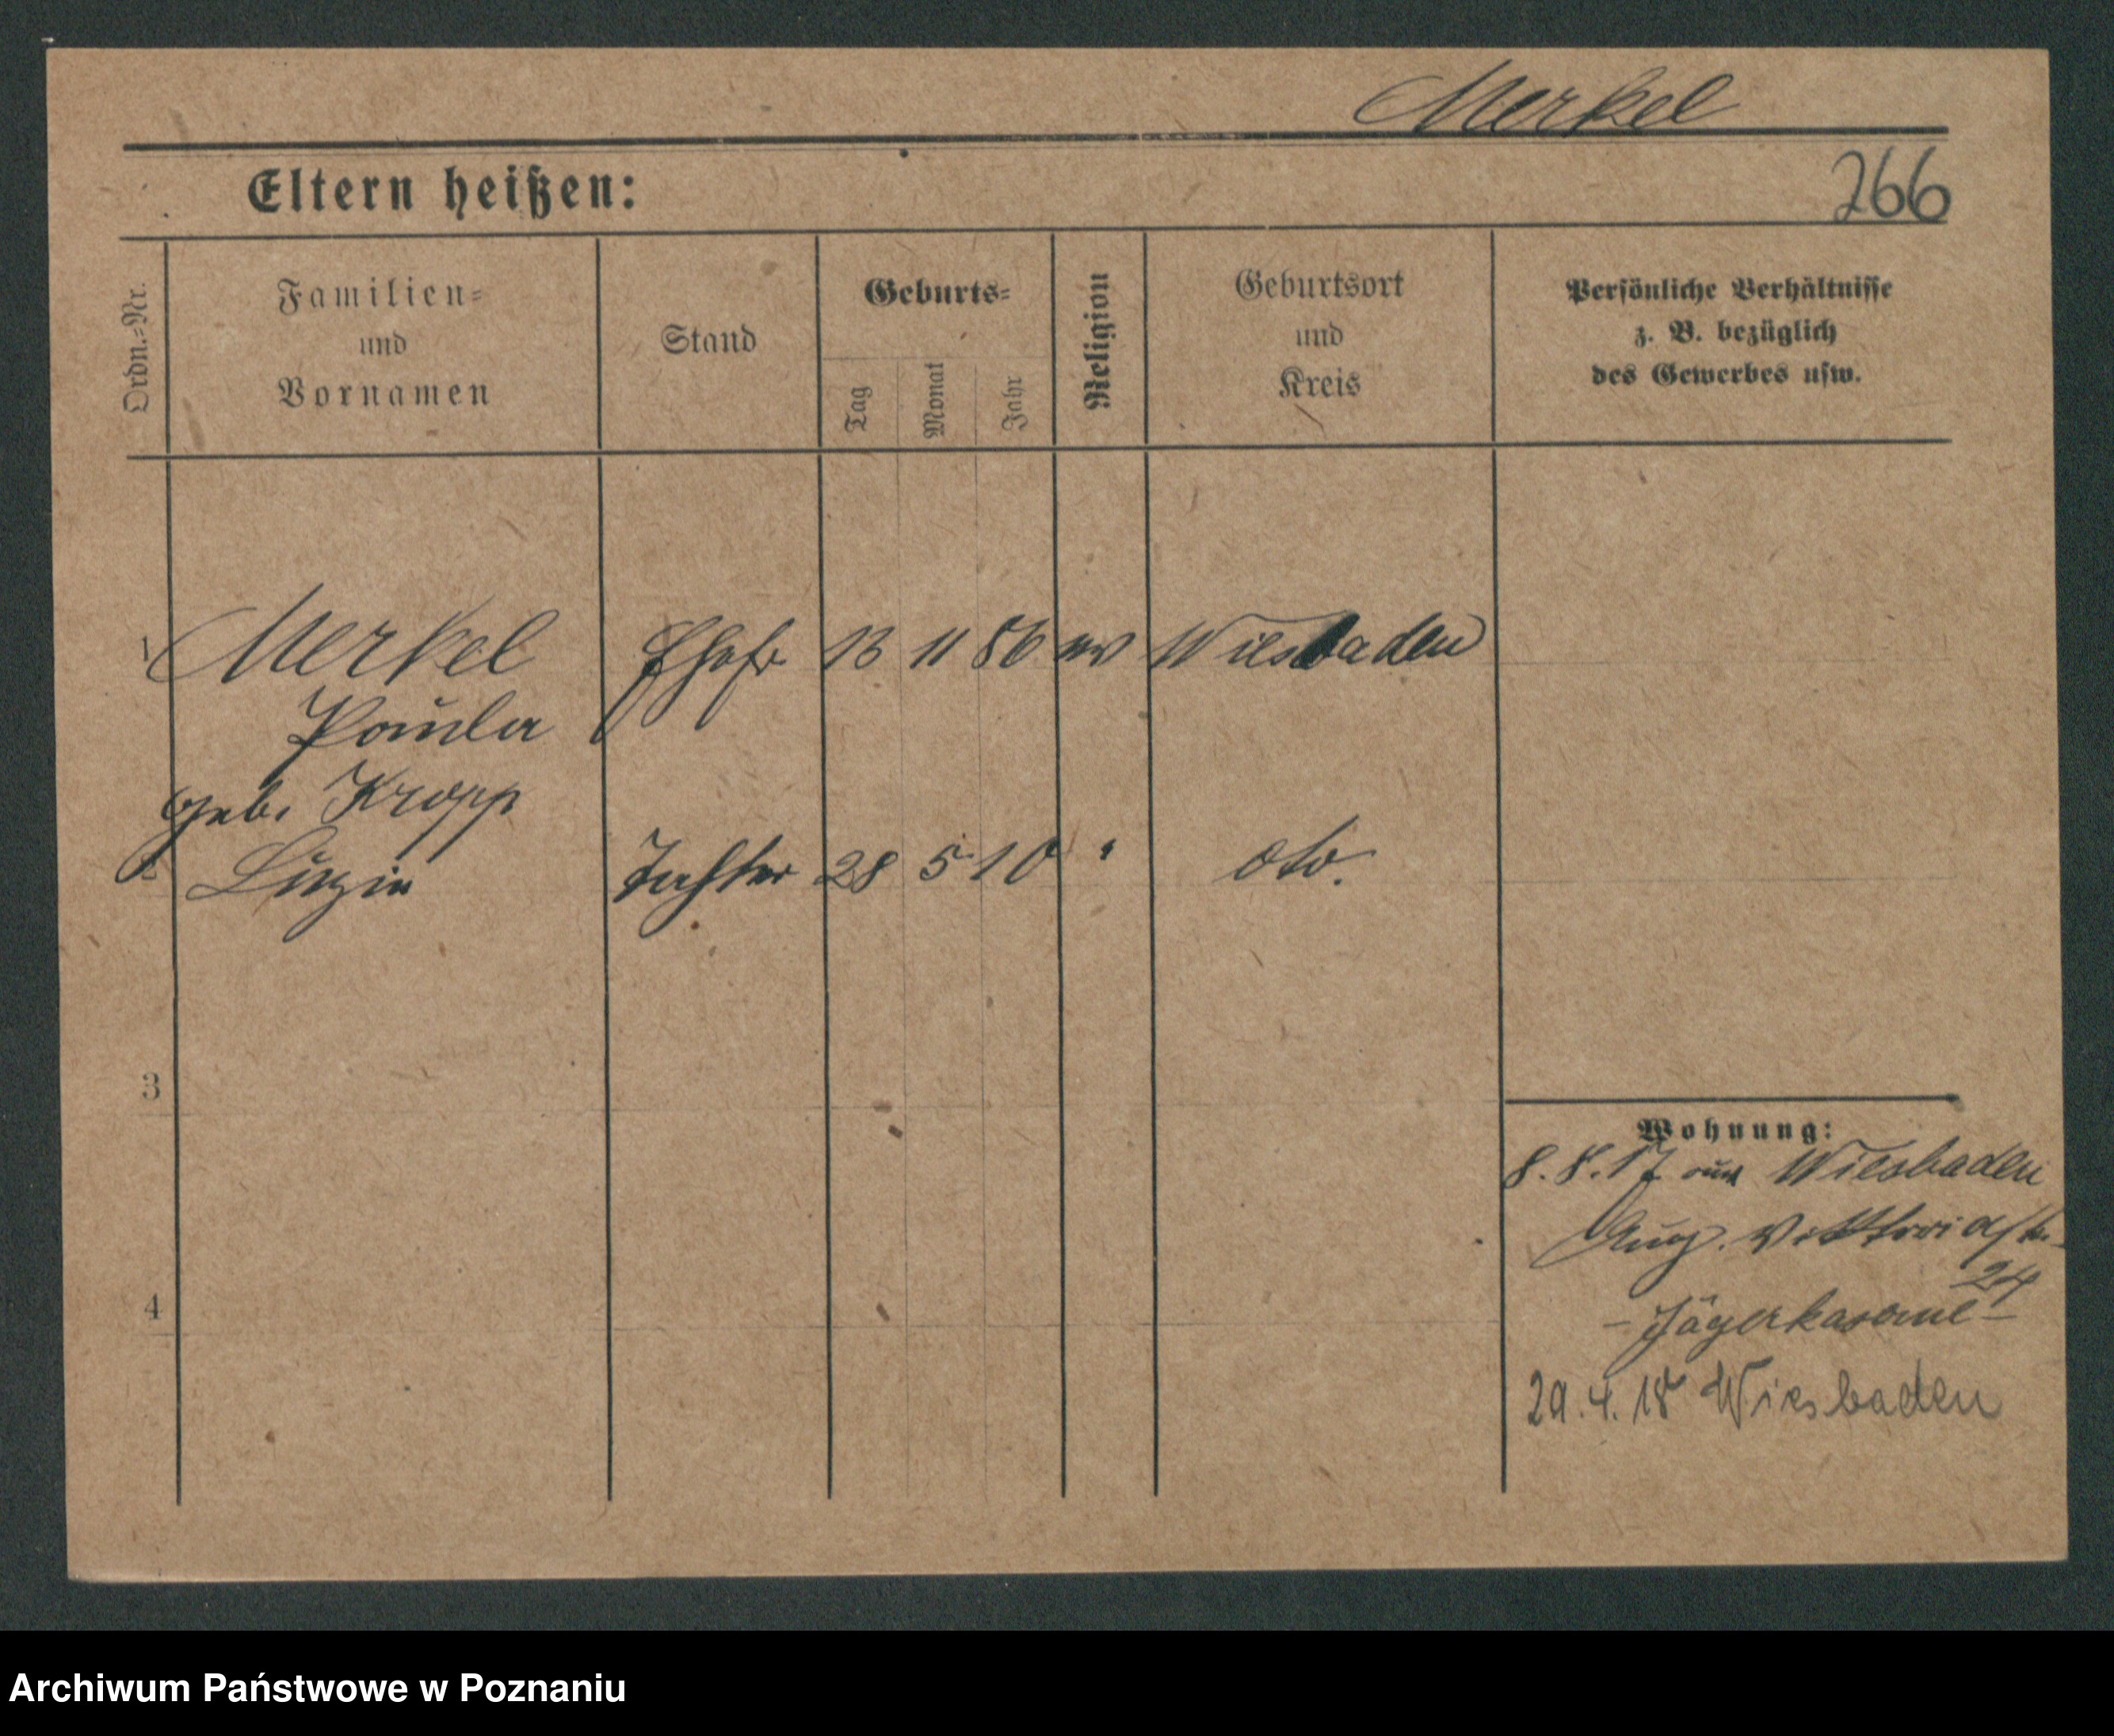 Merkel
Eltern heißen:
266
Ordn.=Nr.
Familien=
und
Vornamen
Stand
Geburts=
Tag
Monat
Jahr
Religion
Geburtsort
und
Kreis
Persönliche Verhältnisse
z. B. bezüglich
des Gewerbes usw.
1 Merkel Ehefr 13 11 86 ev Wiesbaden
Paula
geb. Kropp
2 Luzie Tochter 28 5 10 " dto.
3
4
Wohnung:
8.8.17 aus Wiesbaden
Aug. Viktoriastr.
24
- Jägerkaserne -
29.4.18 Wiesbaden
Archiwum Państwowe w Poznaniu